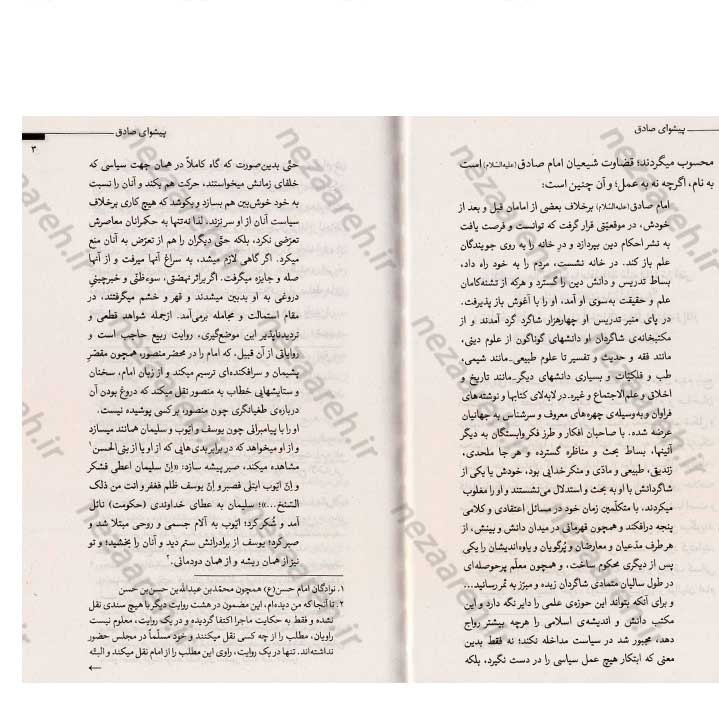 پیشوای صادق
محسوب میگردند؛ قضاوت شیعیان امام صادق (علیه‌السّلام) است
به نام، اگرچه نه به عمل؛ و آن چنین است:
امام صادق (علیه‌السّلام) برخلاف بعضی از امامان قبل و بعد از
خودش، در موقعیّتی قرار گرفت که توانست و فرصت یافت
به نشر احکام دین بپردازد و درِ خانه را به روی جویندگان
علم باز کند. در خانه نشست، مردم را به خود راه داد،
بساط تدریس و دانش دین را گسترد و هرکه از تشنه‌کامان
علم و حقیقت به‌سوی او آمد، او را با آغوش باز پذیرفت.
در پای منبر تدریس او چهارهزار شاگرد گرد آمدند و از
مکتبخانه‌ی شاگردان او دانشهای گوناگون از علوم دینی،
مانند فقه و حدیث و تفسیر تا علوم طبیعی_مانند شیمی،
طب و فلکیّات و بسیاری دانشهای دیگر_مانند تاریخ و
اخلاق و علم‌الاجتماع و غیره، در لابه‌لای کتابها و نوشته‌های
فراوان و به‌وسیله‌ی چهره‌های معروف و سرشناس به جهانیان
عرضه شده. با صاحبان افکار و طرز فکر وابستگان به دیگر
آئینها، بساط بحث و مناظره گسترده و هر جا ملحدی،
زندیق، طبیعی و مادّی و منکر خدایی بود، خودش یا یکی از
شاگردانش با او به بحث و استدلال می‌نشستند و او را مغلوب
میکردند. با متکلّمین زمان خود در مسائل اعتقادی و کلامی
پنجه درافکند و همچون قهرمانی در میدان دانش و بینش، از
هر طرف مدّعیان و معارضان و پُرگویان و یاوه‌اندیشان را یکی
پس از دیگری محکوم ساخت، و همچون معلّم پرحوصله‌ای
در طول سالیان متمادی شاگردان زبده و مبرّز به ثمر رسانید...
و برای آنکه بتواند این حوزه‌ی علمی را دایر نگه دارد و این
مکتب دانش و اندیشه‌ی اسلامی را هرچه بیشتر رواج
دهد، مجبور شد در سیاست مداخله نکند؛ نه فقط بدین
معنی که ابتکار هیچ عمل سیاسی را در دست نگیرد، بلکه
پیشوای صادق
۳
حتّی بدین‌صورت که گاه کاملاً در همان جهت سیاسی که
خلفای زمانش میخواستند، حرکت هم بکند و آنان را نسبت
به خود خوش‌بین هم بسازد و بکوشد که هیچ کاری برخلاف
سیاست آنان از او سر نزند، لذا نه‌تنها به حکمرانان معاصرش
تعرّضی نکرد، بلکه حتّی دیگران را هم از تعرّض به آنان منع
میکرد. اگر گاهی لازم میشد، به سراغ آنها میرفت و از آنها
صله و جایزه میگرفت. اگر براثر نهضتی، سوءظنّی و خبرچینیِ
دروغی به او بدبین میشدند و قهر و خشم میگرفتند، در
مقام استمالت و مجامله برمی‌آمد. ازجمله شواهد قطعی و
تردیدناپذیر این موضع‌گیری، روایت ربیع حاجب است و
روایاتی از آن قبیل، که امام را در محضر منصور، همچون مقصّرِ
پشیمان و سرافکنده‌ای ترسیم میکند و از زبان امام، سخنان
و ستایشهایی خطاب به منصور نقل میکند که دروغ بودن آن
درباره‌ی طغیانگری چون منصور، بر کسی پوشیده نیست.
او را با پیامبرانی چون یوسف و ایّوب و سلیمان همانند میسازد
و از او میخواهد که در برابر بدی‌هایی که از او یا از بنی الحسن۱
مشاهده میکند، صبر پیشه سازد: «إنّ سلیمان اعطی فشکر
و إنّ ایّوب ابتلی فصبر و إنّ یوسف ظلم فغفر و انت من ذلک
السّنخ...»؛ سلیمان به عطای خداوندی (حکومت) نائل
آمد و شُکر کرد؛ ایّوب به آلام جسمی و روحی مبتلا شد و
صبر کرد؛ یوسف از برادرانش ستم دید و آنان را بخشید؛ و تو
نیز از همان ریشه و از همان دودمانی.۲
۱. نوادگان امام حسن(ع) همچون محمّد بن عبدالله بن حسن بن حسن
۲. تا آنجا که من دیده‌ام، این مضمون در هشت روایت دیگر با هیچ سندی نقل
نشده و فقط به حکایت ماجرا اکتفا گردیده و در یک روایت، معلوم نیست
راویان، مطلب را از چه کسی نقل میکنند و خود مسلّماً در مجلس حضور
نداشته‌اند. تنها در یک روایت، راوی این مطلب را از امام نقل میکند و البتّه
nezaareh.ir
nezaareh.ir
nezaareh.ir
nezaareh.ir
nezaareh.ir
nezaareh.ir